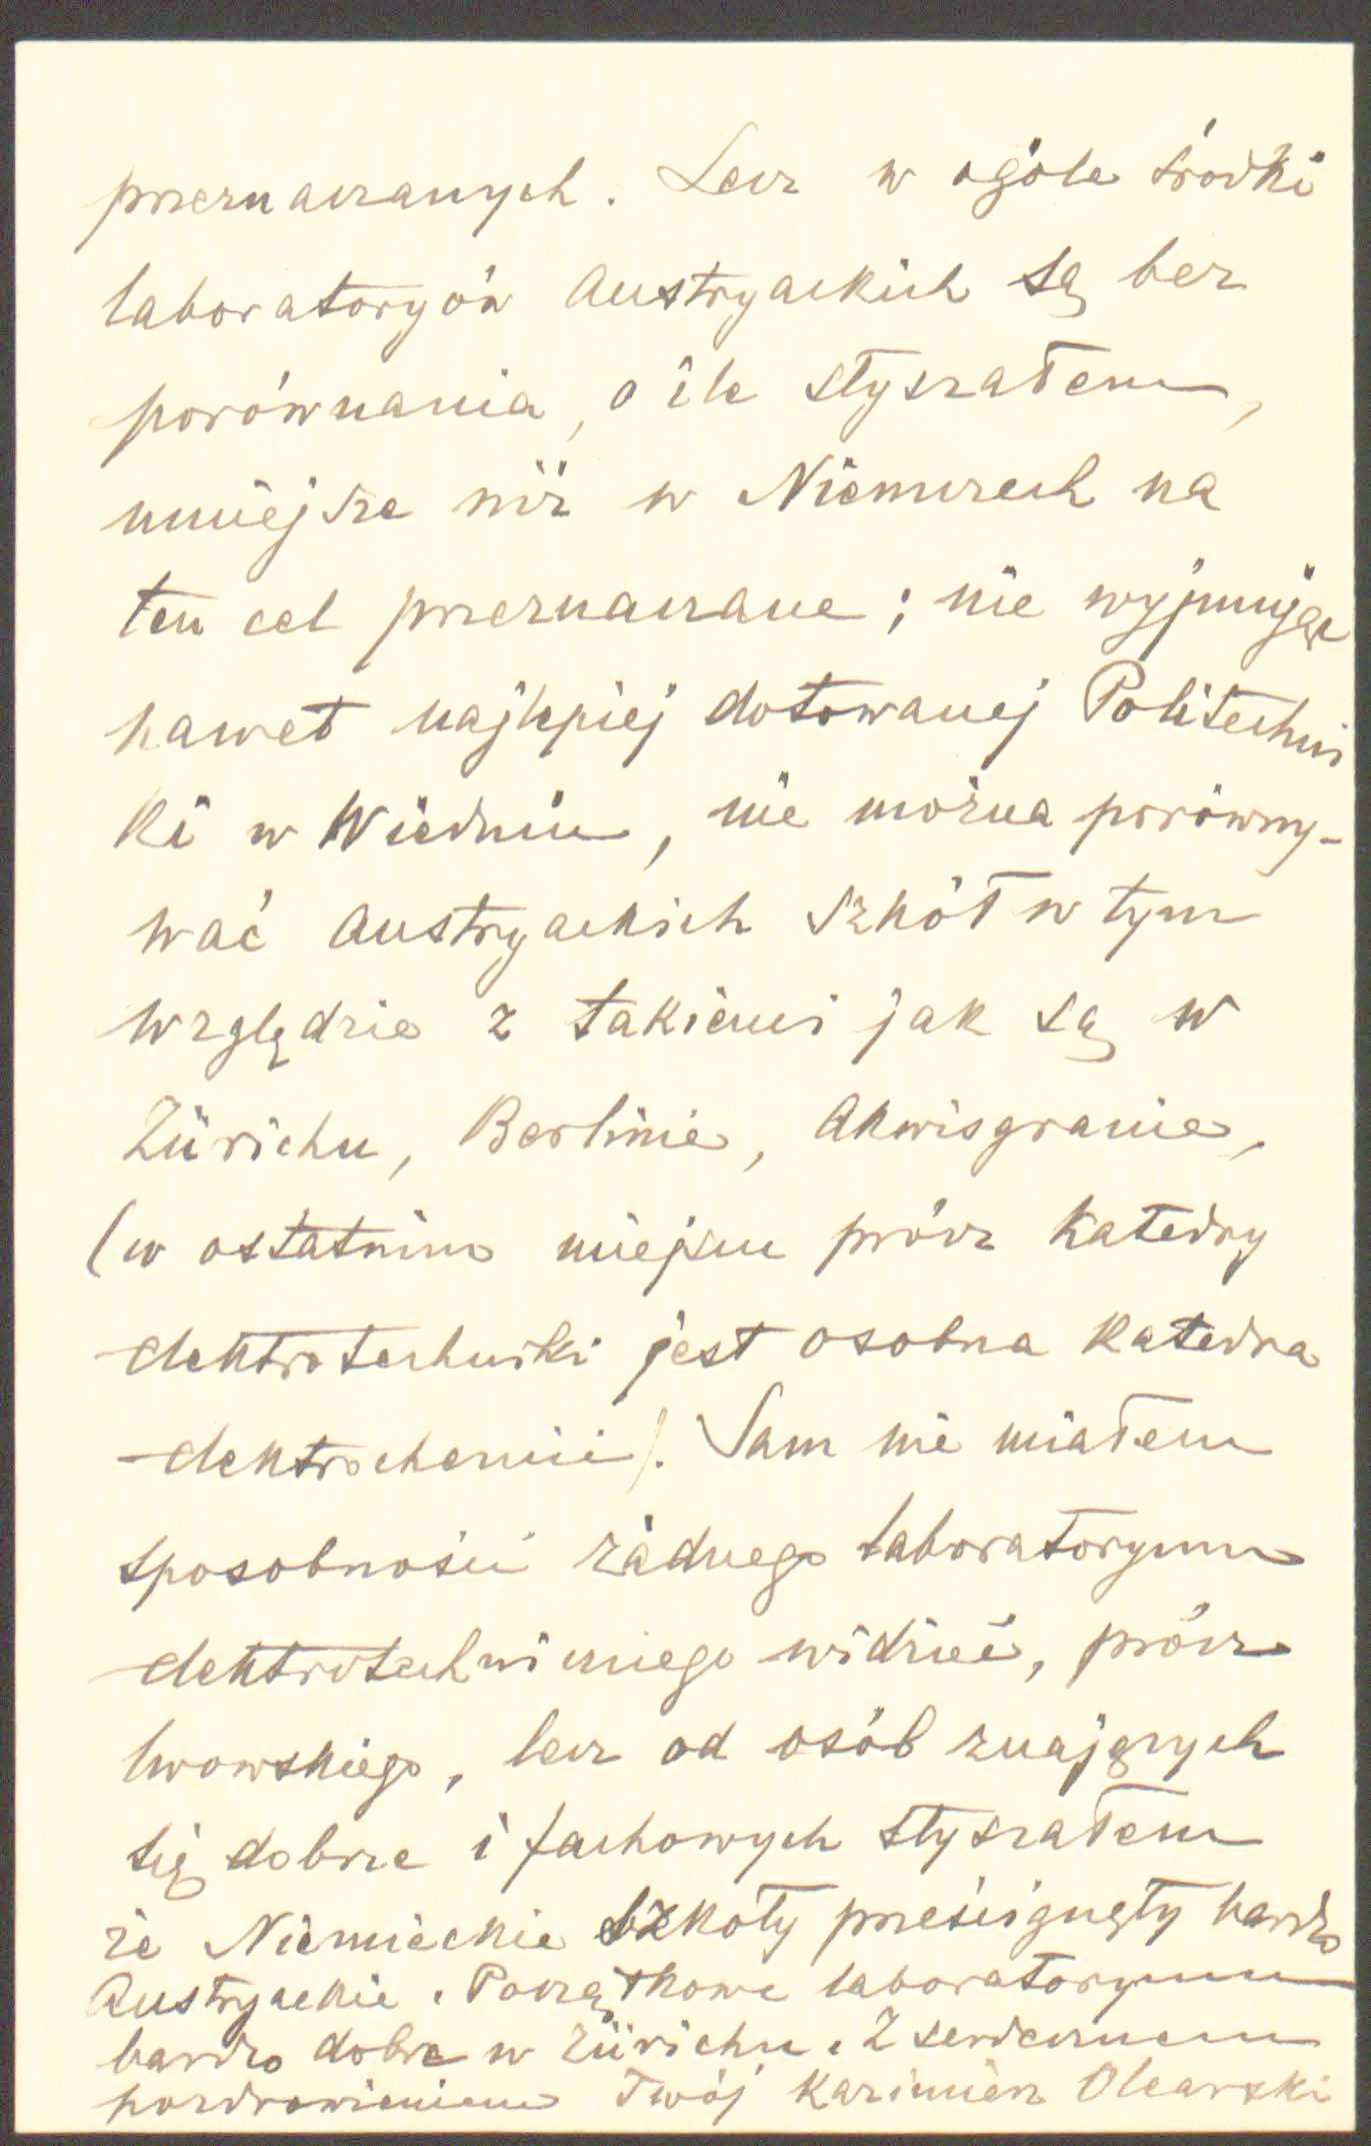 przeznaczanych. Lecz w ogóle środki
laboratoryów Austryackich są bez
porównania, o ile słyszałem,
mniejsze niż w Niemczech na
ten cel przeznaczane; nie wyjmując
nawet najlepiej dotowanej Politechni
ki w Wiedniu, nie można porówny-
wać Austryackich szkół w tym
względzie z takiemi jak są w
Zürichu, Berlinie, Akwisgranie,
(w ostatnim miejscu prócz katedry
elektrotechniki jest osobna katedra
elektrochemii). Sam nie miałem
sposobności żadnego laboratoryum
elektrotechnicznego widzieć, prócz
lwowskiego, lecz od osób znających
się dobrze i fachowych słyszałem
że Niemieckie szkoły prześcignęły bardzo
Austryackie. Początkowe laboratoryum
bardzo dobre w Zürichu. Z serdecznem
pozdrowieniem Twój Kazimierz Olearski